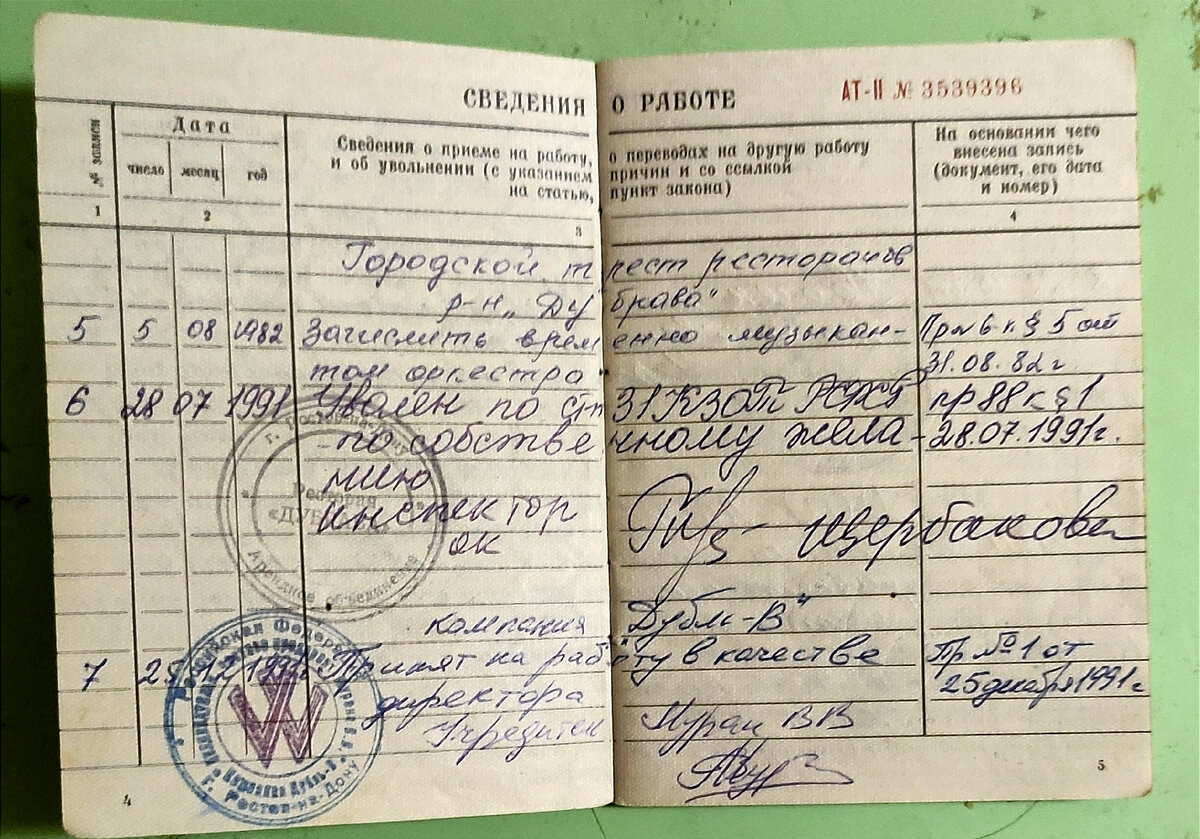 СВЕДЕНИЯ О РАБОТЕ АТ-II № 3539396
№ записи
Дата
число месяц год
Сведения о приеме на работу, о переводах на другую работу
и об увольнении (с указанием причин и со ссылкой
на статью, пункт закона)
На основании чего
внесена запись
(документ, его дата
и номер)
1 2 3 4
Городской трест ресторанов
р-н „Дубрава"
5 5 08 1982 Зачислить временно музыкан-
том оркестра
31.08.82 г.
6 28 07 1991 Уволен по ст 31 КЗОТ РСФСР пр 88 к § 1
по собственному жела- 28.07.1991г.
нию
инспектор
ок
Щербакова
г. Ростов-на-Дону
Ресторан
Арендное объединение
компания Дубль-В"
7 25 12 1991 Принят на работу в качестве Пр №1 от
директора 25 декабря 1991 г
Учредител
Российская Федерация
W
Компания Дубль-В
г. Ростов-на-Дону
4 5